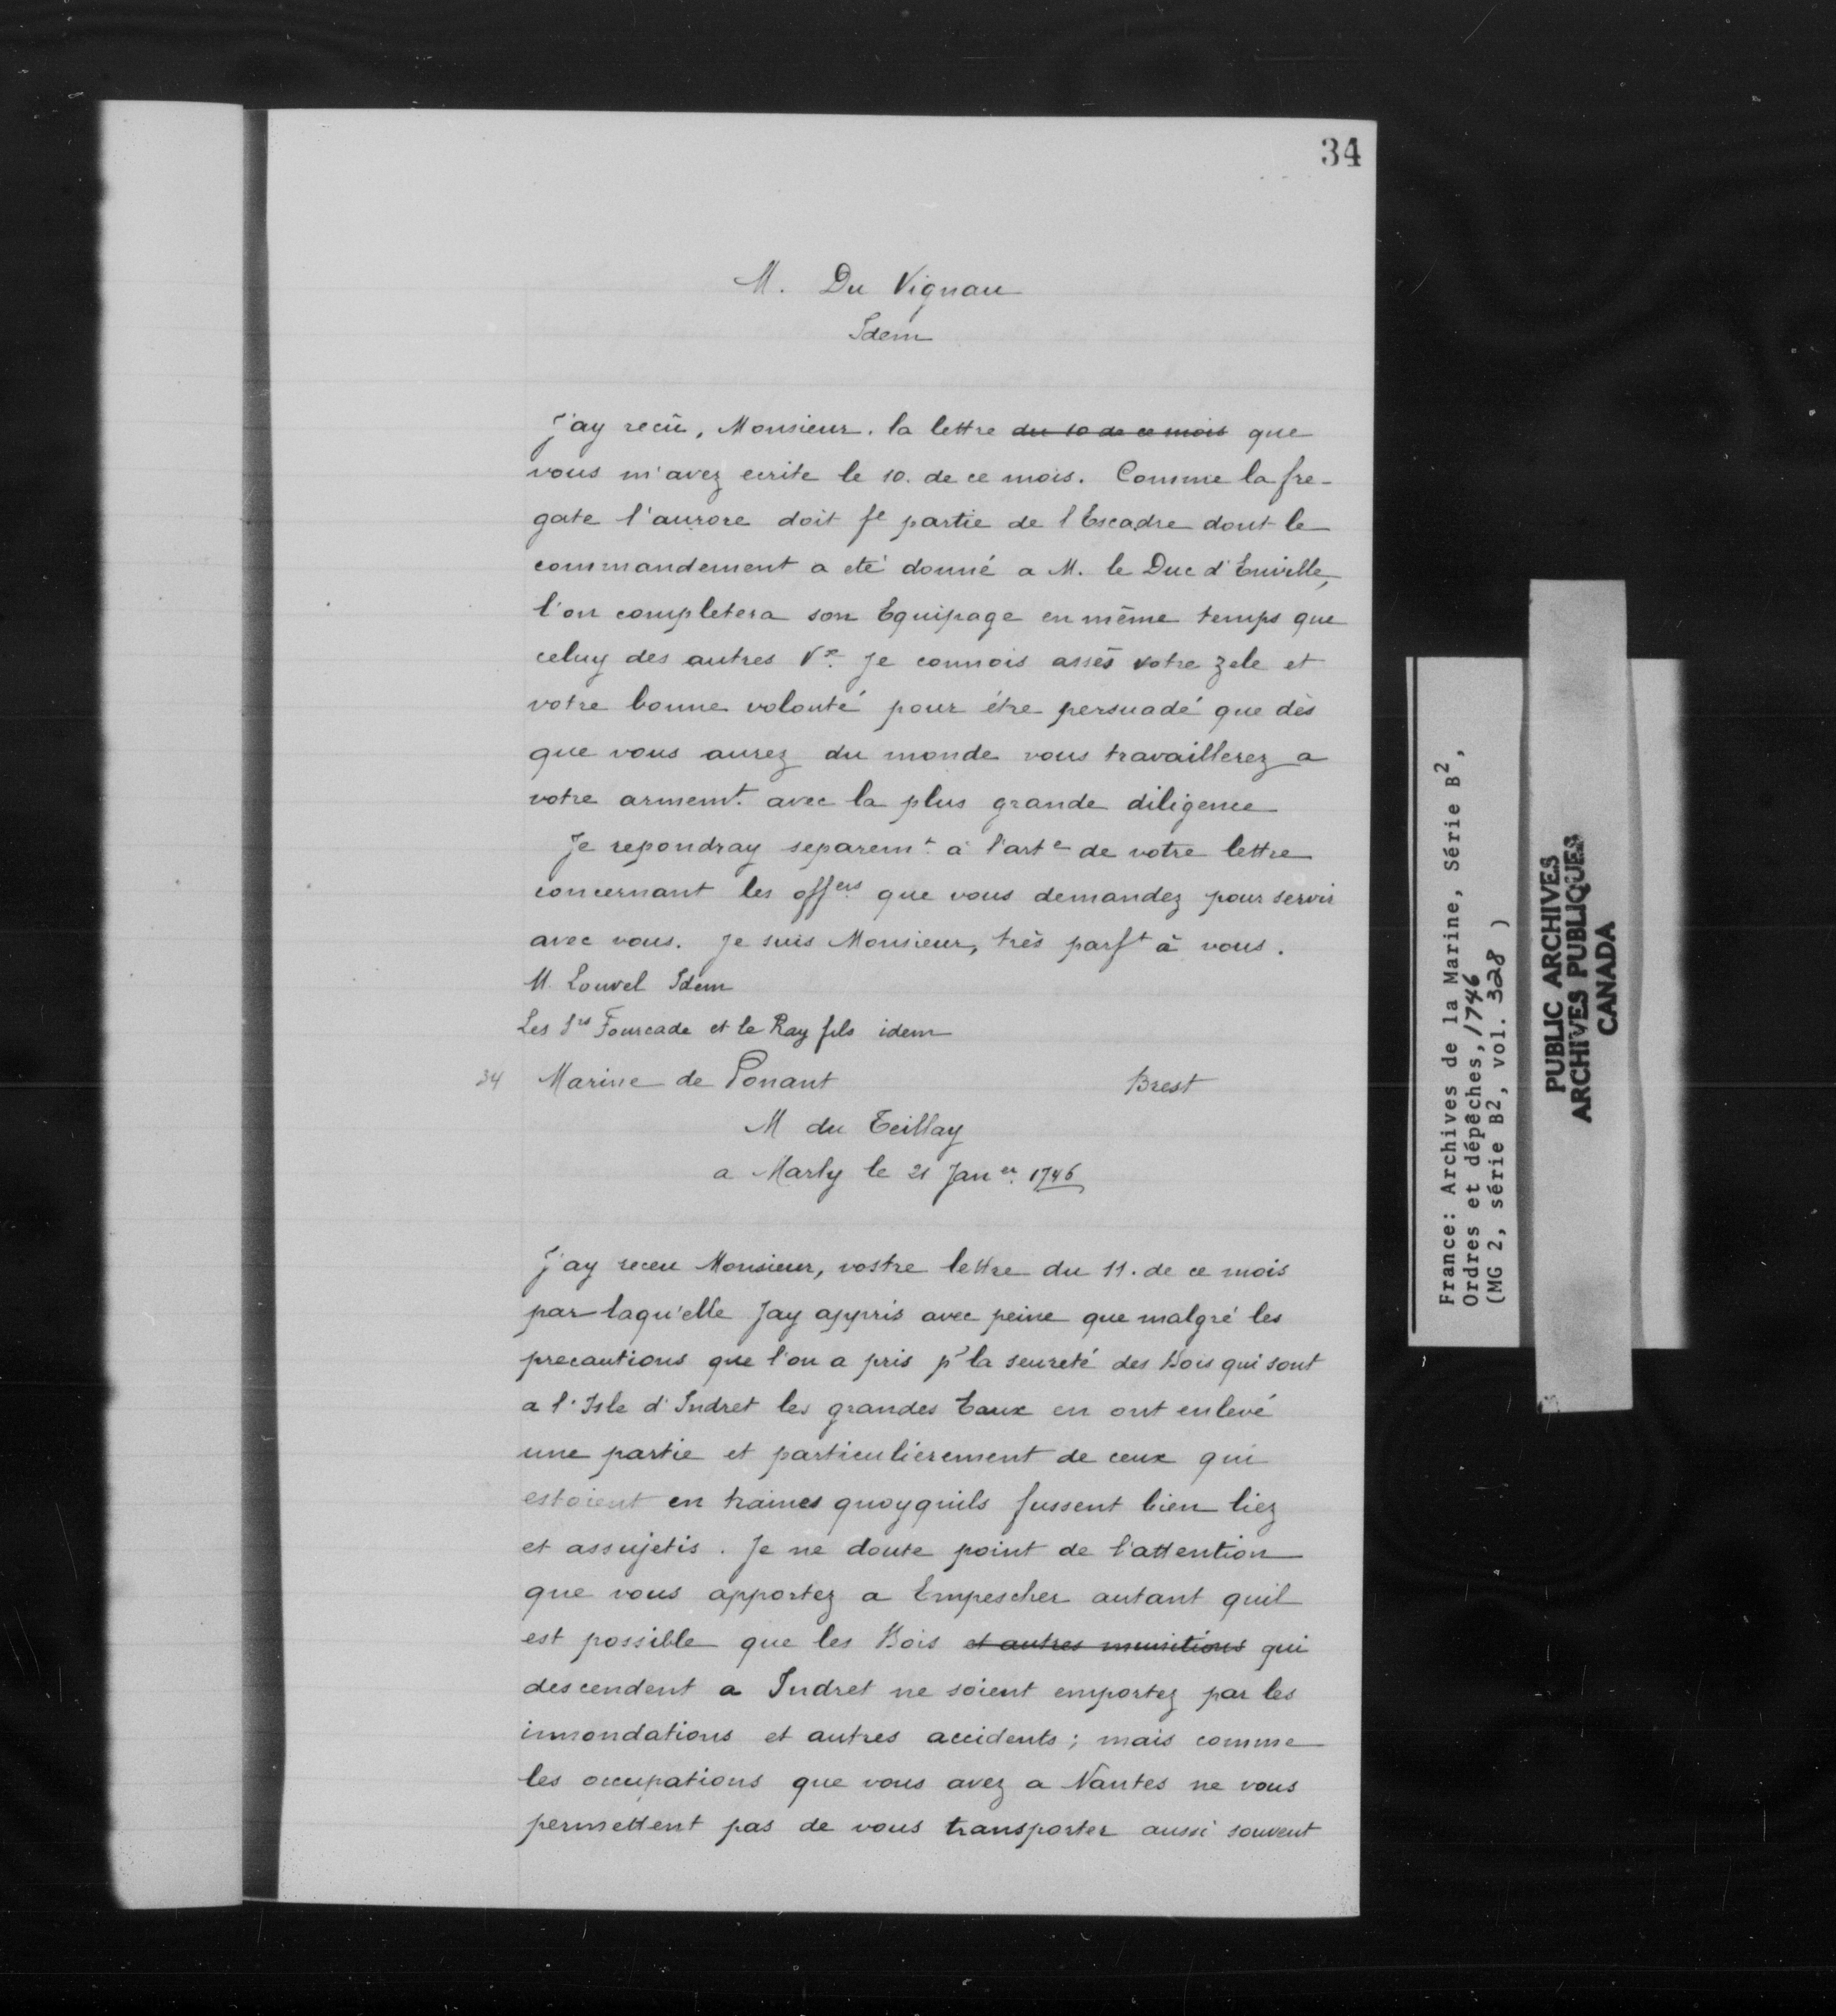 34
M. Du Vignau
Idem
J'ay recû, Monsieur. la lettre du 10 de ce mois que
vous m'avez ecrite le 10. de ce mois. Comme la fre-
gate l'aurore doit fe partie de l'Escadre dont le
commandement a eté donné a M. le Duc d'Enville,
l'on completera son Equipage en même temps que
celuy des autres Vx. Je connois assés votre zele et
votre bonne volonté pour étre persuadé que dès
que vous aurez du monde vous travaillerez a
votre armemt. avec la plus grande diligence
Je repondray separemt. à l'arte de votre lettre
concernant les offers. que vous demandez pour servir
avec vous. Je suis Monsieur, très parft à vous.
M. Louvel Idem
Les Srs Fourcade et le Ray fils idem
34 Marine de Ponant Brest
M du Teillay
a Marly le 21 Janer. 1746
J'ay receu Monsieur, vostre lettre du 11. de ce mois
par laqu'elle Jay appris avec peine que malgré les
precautions que l'on a pris pr la seureté des Bois qui sont
a l'Isle d'Indret les grandes Eaux en ont enlevé
une partie et particulierement de ceux qui
estoient en traines quoyquils fussent bien liez
et assujetis. Je ne doute point de l'attention
que vous apportez a Empescher autant quil
est possible que les Bois et autres munitions qui
descendent a Indret ne soient emportez par les
innondations et autres accidents; mais comme
les occupations que vous avez a Nantes ne vous
permettent pas de vous transporter aussi souvent
France: Archives de la Marine, Série B2,
Ordres et dépêches, 1746
(MG 2, série B2, vol. 328 )
PUBLIC ARCHIVES
ARCHIVES PUBLIQUES
CANADA